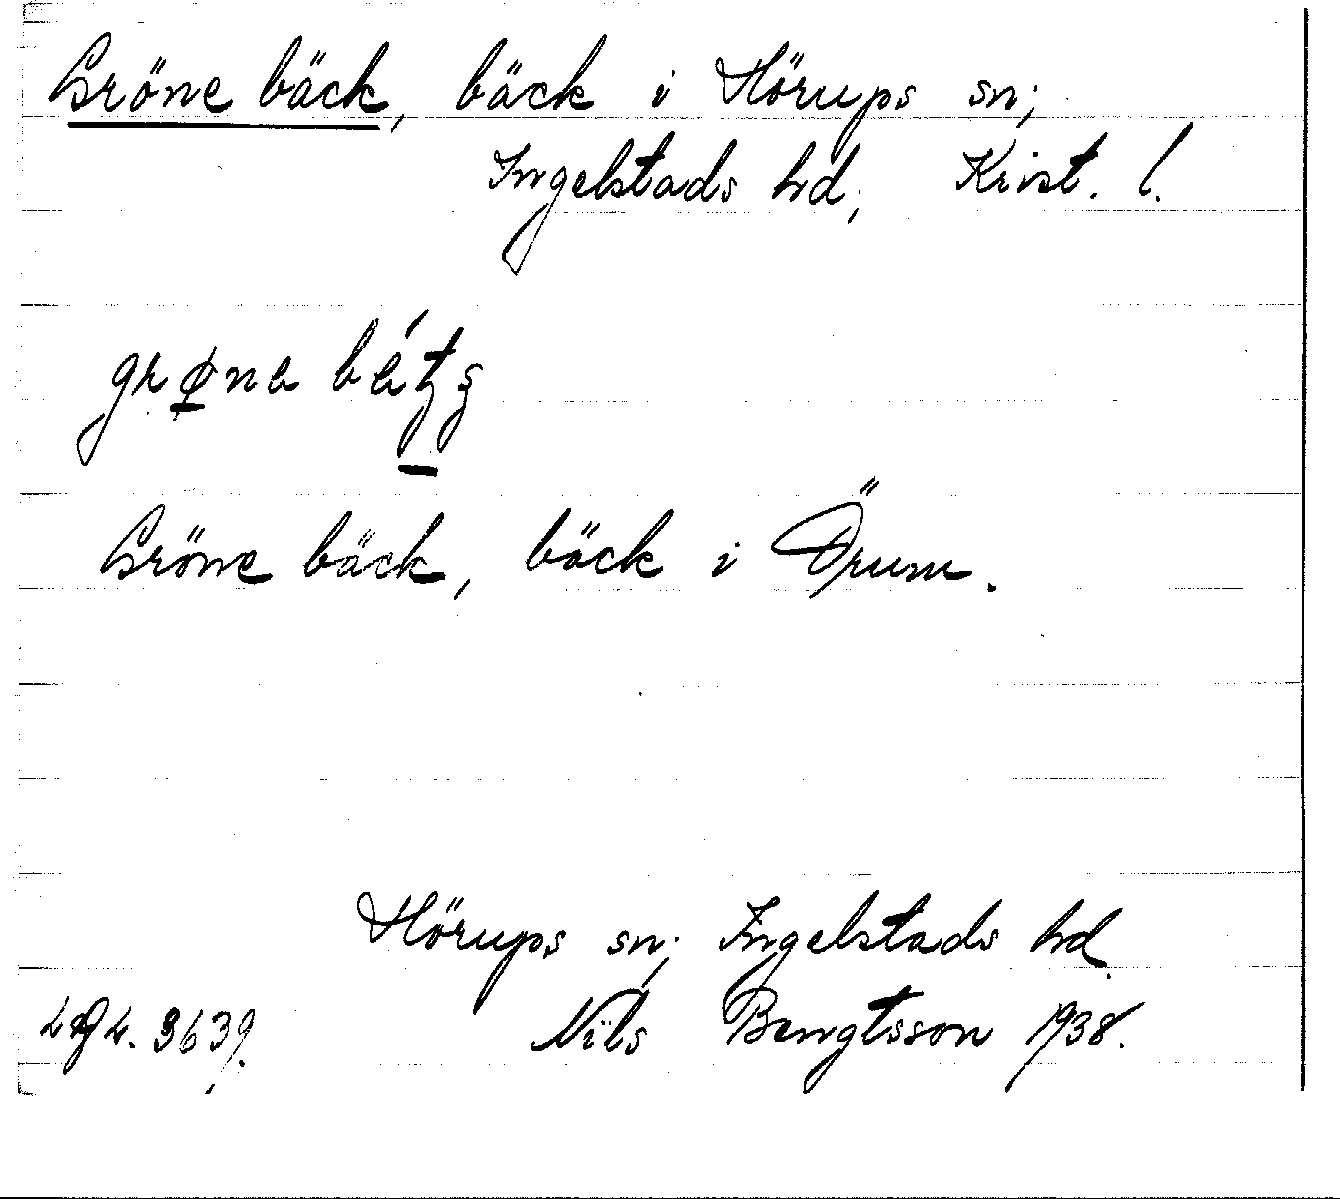 Gröne bäck, bäck i Hörups sn;
Ingelstads hd; Krist. l.
grønə
Gröne bäck, bäck i Örum.
Hörups sn; Ingelstads hd.
3639. Nils Bengtsson 1938.